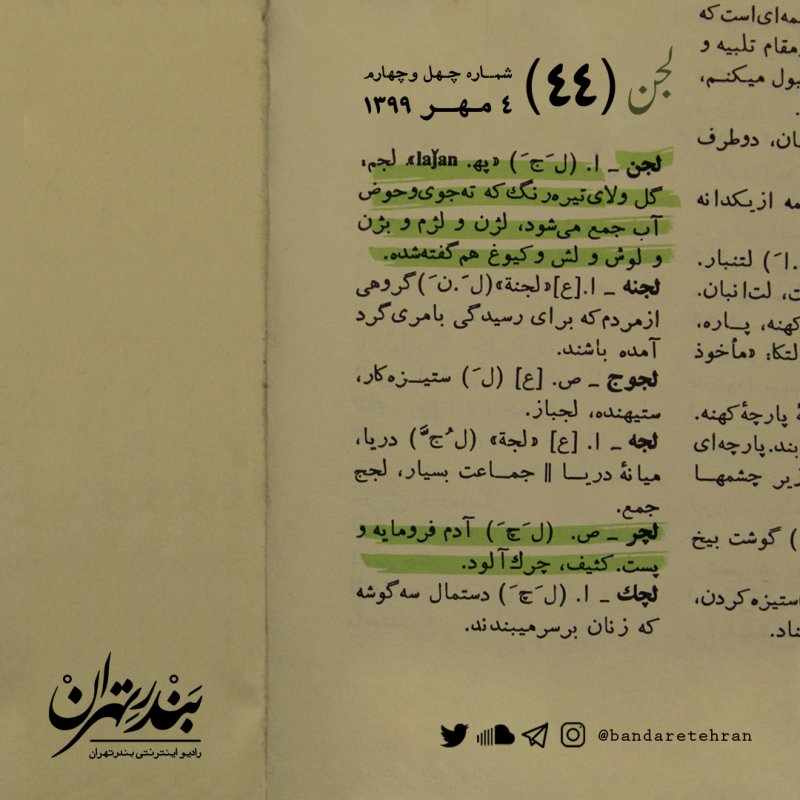 لجن
(٤٤)
شماره چهل و چهارم
٤ مهر ١٣٩٩
لجن _ ا. (ل َج َ) «په. laǰan». لجم:
گل ولای تیره‌رنگ که ته‌جوی‌وحوض
آب جمع می‌شود، لژن و لژم و بژن
و لوش و لش و کیوغ هم گفته‌شده.
لجنه _ ا.[ع]«لجنة»(ل َ.ن َ)گروهی
ازمردم که برای رسیدگی بامری گرد
آمده باشند.
لجوج _ ص. [ع] (ل َ) ستیزه‌کار،
ستیهنده، لجباز.
لجه _ ا. [ع] «لجة» (ل ُج َّ) دریا،
میانهٔ دریا || جماعت بسیار، لجج
جمع.
لچر _ ص. (ل َچ َ) آدم فرومایه و
پست. کثیف، چرك‌آلود.
لچك _ ا. (ل َچ َ) دستمال سه‌گوشه
که زنان برسرمیبندند.
مه‌ای‌است که
مقام تلبیه و
بول میکنم،
ان، دوطرف
مه ازیکدانه
.ا َ) لتنبار.
ت، لت‌انبان.
کهنه، پاره،
لتکا: «مأخوذ
ٔ پارچهٔ کهنه.
بند. پارچه‌ای
زیر چشمها
) گوشت بیخ
استیزه کردن،
ناد.
بندرتهران
رادیو اینترنتی بندرتهران
@bandaretehran